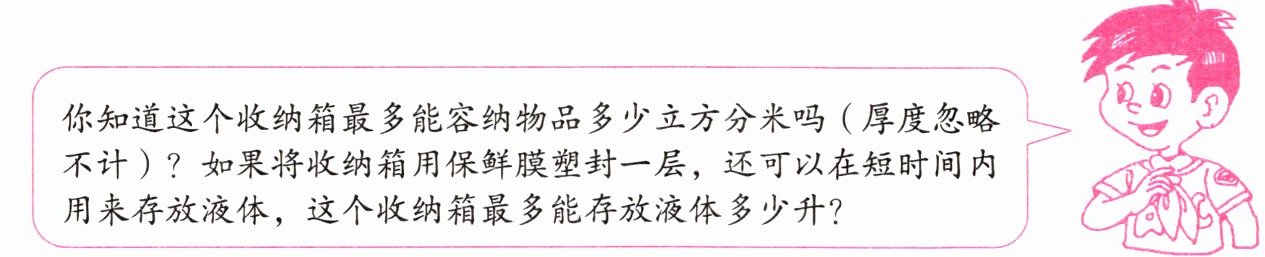 你知道这个收纳箱最多能容纳物品多少立方分米吗（厚度忽略
不计）？如果将收纳箱用保鲜膜塑封一层，还可以在短时间内
用来存放液体，这个收纳箱最多能存放液体多少升？